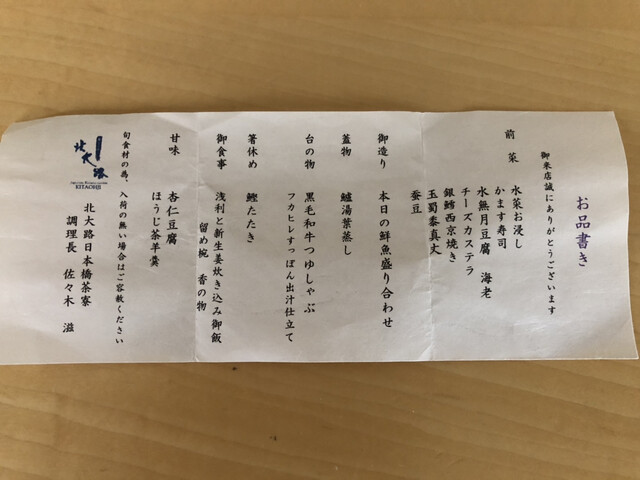 お品書き
御来店誠にありがとうございます
前菜
水菜お浸し
かます寿司
水無月豆腐　海老
チーズカステラ
銀鱈西京焼き
玉蜀黍真丈
蚕豆
御造り
本日の鮮魚盛り合わせ
蓋物
鱸湯葉蒸し
台の物
黒毛和牛つゆしゃぶ
フカヒレすっぽん出汁仕立て
箸休め
鰹たたき
御食事
浅利と新生姜炊き込み御飯
留め椀　香の物
甘味
杏仁豆腐
ほうじ茶羊羹
旬食材の為、入荷の無い場合はご容赦ください
北大路
KITAOHJI
北大路日本橋茶寮
調理長　佐々木　滋